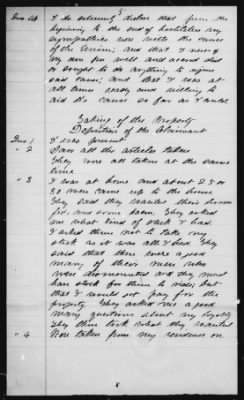 3
Ques 43 I do solemnly declare that from the
beginning to the end of hostilities my
sympathies were with the cause
of the Union; and that I never of
my own free will and accord did
or sought to do anything to injure
said cause; and that I was at
all times ready and willing to
aid the cause so far as I could
Taking of the Property
Deposition of the Claimant
Ques 1 I was present
" 2 I saw all the articles taken
They were all taken at the same
time
" 3 I was at home and about 25 or
30 men came up to the house
They said they wanted their horses
fed, and some bacon. They asked
me what kind of stock I had
I asked them not to take my
stock as it was all I had They
said that there were a good
many of their men who
were dismounted and they must
have stock for them to ride, but
that I would get pay for the
property They asked me a good
many questions about my loyalty
They then took what they wanted
" 4 Were taken from my residence on